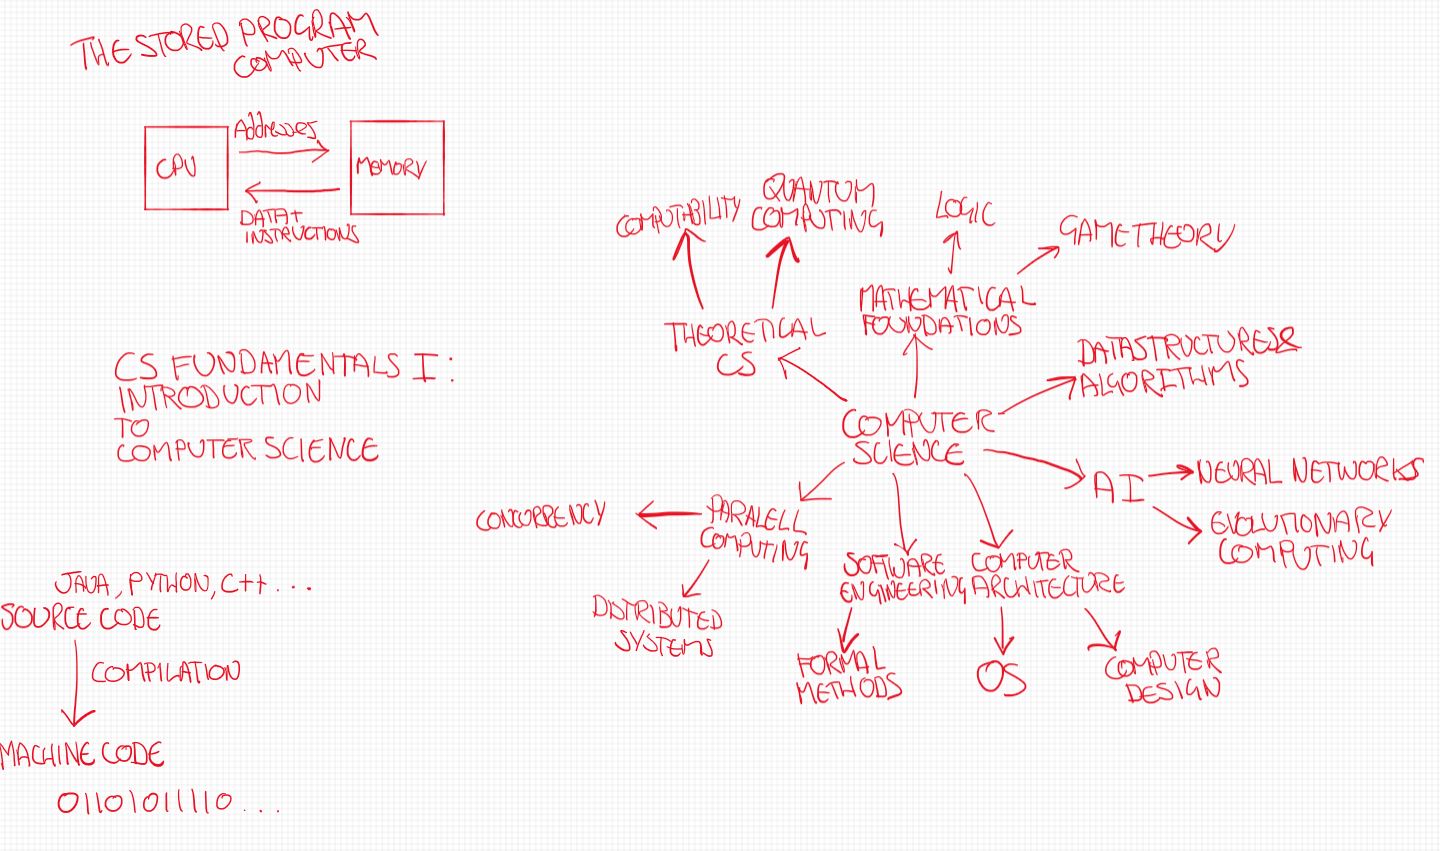 THE STORED PROGRAM
COMPUTER
CPU
Addresses
MEMORY
DATA+
INSTRUCTIONS
CS FUNDAMENTALS I:
INTRODUCTION
TO
COMPUTER SCIENCE
JAVA, PYTHON, C++ ...
SOURCE CODE
COMPILATION
MACHINE CODE
01101011110...
COMPUTABILITY
QUANTUM
COMPUTING
LOGIC
GAME THEORY
THEORETICAL
CS
MATHEMATICAL
FOUNDATIONS
DATASTRUCTURES&
ALGORITHMS
COMPUTER
SCIENCE
AI
NEURAL NETWORKS
EVOLUTIONARY
COMPUTING
CONCURRENCY
PARALELL
COMPUTING
DISTRIBUTED
SYSTEMS
SOFTWARE
ENGINEERING
COMPUTER
ARCHITECTURE
FORMAL
METHODS
OS
COMPUTER
DESIGN